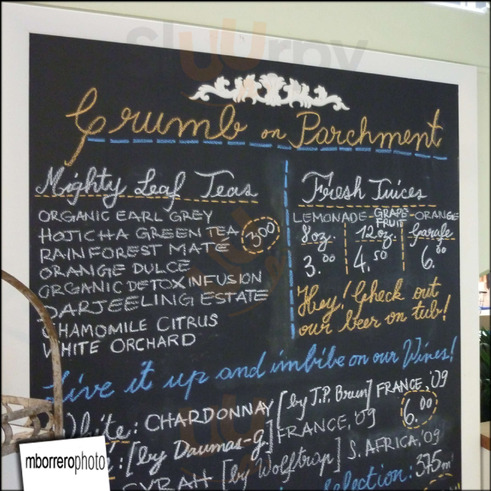 sluurpy
Crumb on Parchment
Mighty Leaf Teas
ORGANIC EARL GREY
HOJICHA GREEN TEA
RAINFOREST MATE
ORANGE DULCE
ORGANIC DETOX INFUSION
DARJEELING ESTATE
CHAMOMILE CITRUS
WHITE ORCHARD
3.00
Fresh Juices
LEMONADE-GRAPEFRUIT-ORANGE
8oz. 12oz. Garafe
3.00 4.50 6.00
Hey! Check out
our beer on tub!
Live it up and imbibe on our Wines!
White: CHARDONNAY [by J.P. Brun] FRANCE, '09
6.00
: [by Daumas-G.] FRANCE, '09
SYRAH [by Wolftrap] S. AFRICA, '09
Selection: 375ml
mborrerophoto